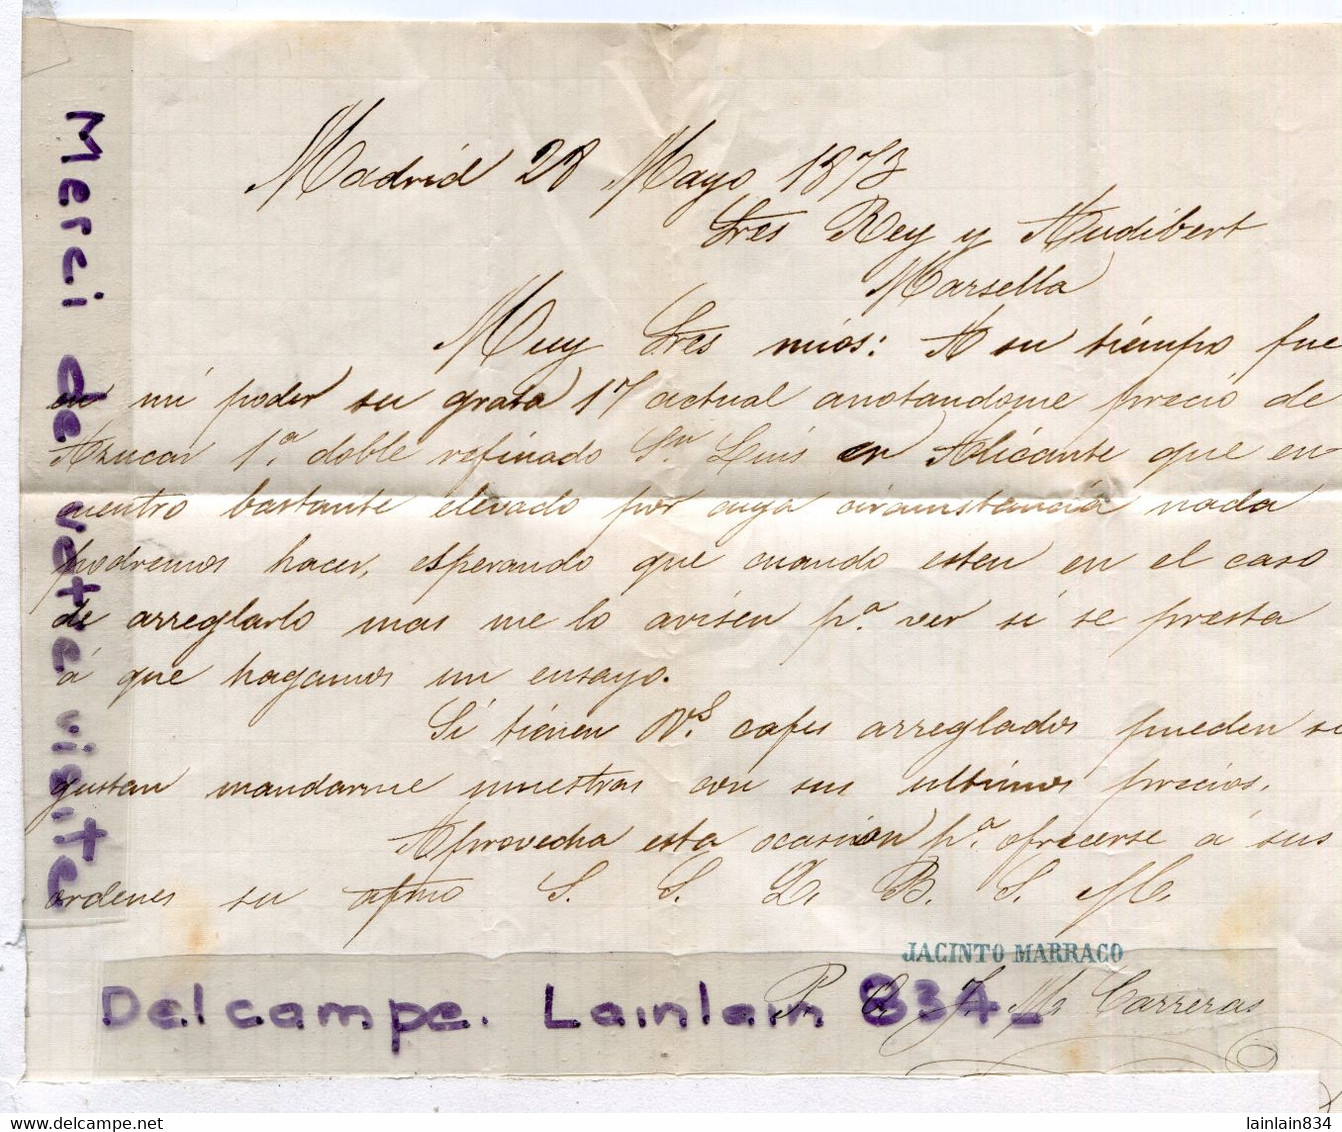 Madrid 28 Mayo 1873
Sres Rey y Audibert
Marsella
Muy Sres mios: A su tiempo fue
en mi poder su grata 17 actual anotandome precio de
Azucar 1ª doble refinado Sn Luis en Alicante que en-
cuentro bastante elevado por cuya circunstancia nada
podremos hacer, esperando que cuando esten en el caso
de arreglarlo mas me lo avisen pª ver si se presta
á que hagamos un ensayo.
Si tienen Vs. cafes arreglados pueden si
gustan mandarme muestras con sus ultimos precios.
Aprovecha esta ocasion pª ofrecerse á sus
ordenes su afmo S. S. Q. B. S. M.
JACINTO MARRACO
P. O. J. Ma Carreras
Merci de votre visite
Delcampe. Lainlain 834
delcampe.net
lainlain834